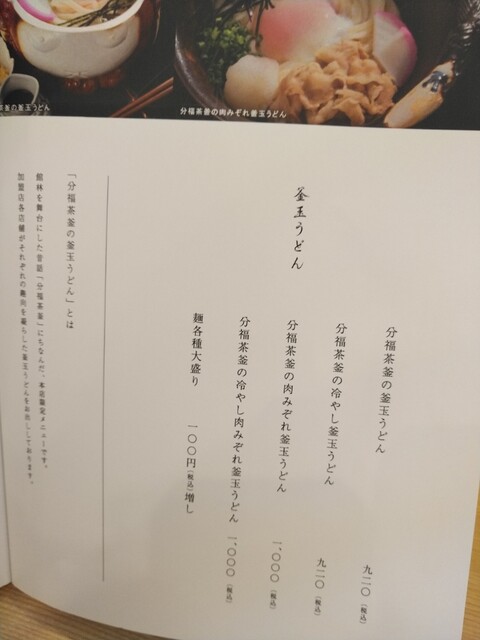 茶釜の釜玉うどん
分福茶釜の肉みぞれ釜玉うどん
釜玉うどん
分福茶釜の釜玉うどん 九二〇(税込)
分福茶釜の冷やし釜玉うどん 九二〇(税込)
分福茶釜の肉みぞれ釜玉うどん 一、〇〇〇(税込)
分福茶釜の冷やし肉みぞれ釜玉うどん 一、〇〇〇(税込)
麺各種大盛り 一〇〇円(税込)増し
「分福茶釜の釜玉うどん」とは
館林を舞台にした昔話「分福茶釜」にちなんだ、本店限定メニューです。
加盟店各店舗がそれぞれの趣向を凝らした釜玉うどんをお出ししております。